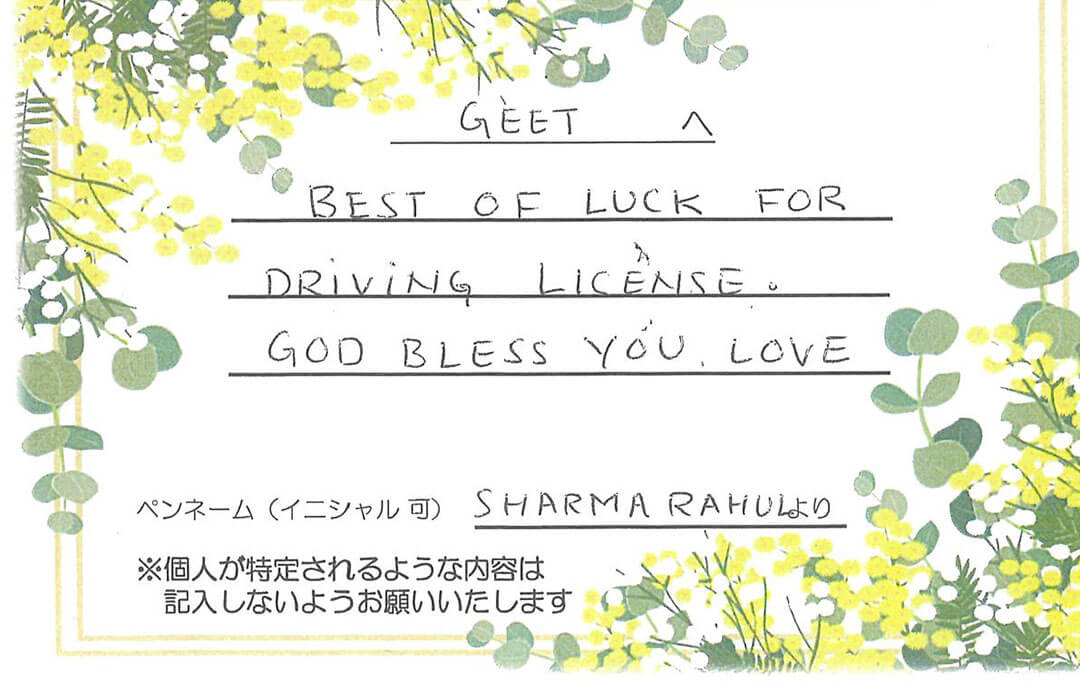 GEET へ
BEST OF LUCK FOR
DRIVING LICENSE.
GOD BLESS YOU. LOVE
ペンネーム（イニシャル 可） SHARMA RAHULより
※個人が特定されるような内容は
記入しないようお願いいたします